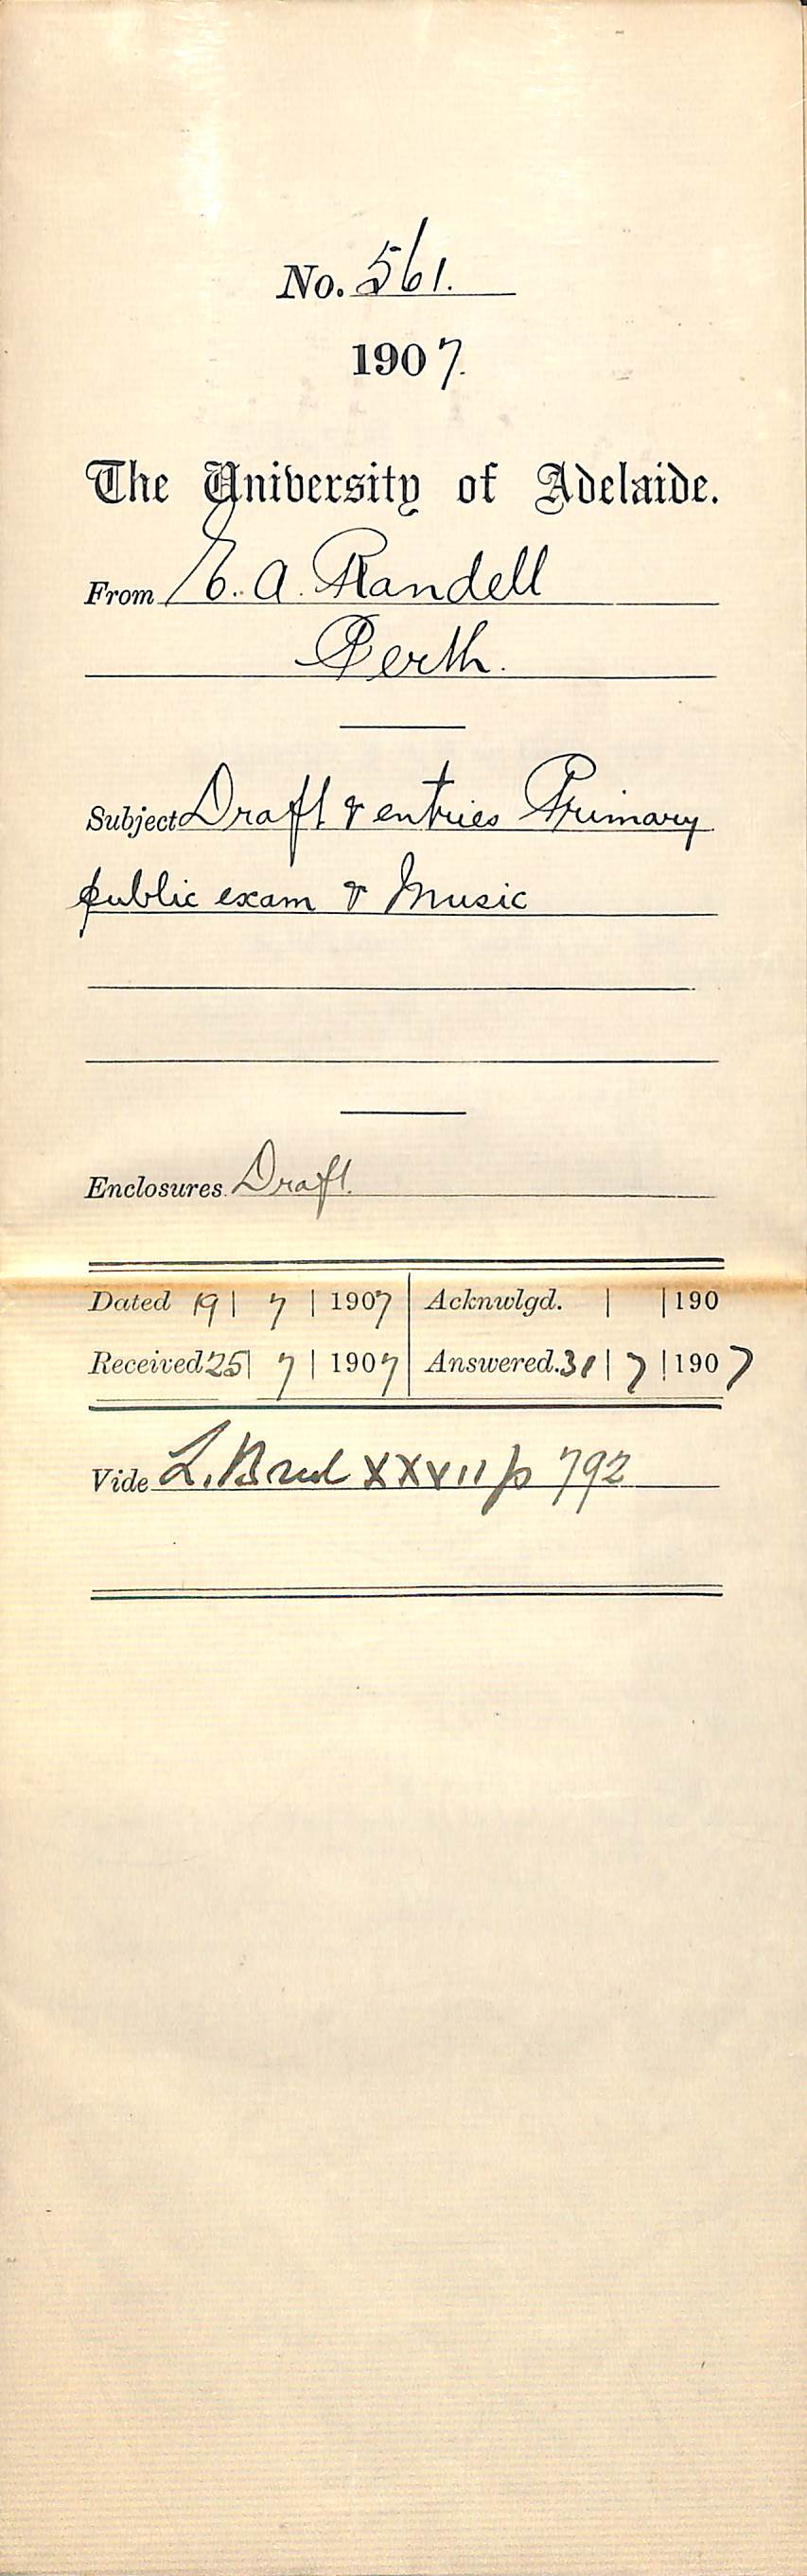 No. 561.
1907.
The University of Adelaide.
From E. A. Randell
Perth.
Subject Draft & entries Primary
public exam & Music
Enclosures. Draft.
Dated 19 | 7 | 1907 | Acknwlgd. | | 190
Received 25 | 7 | 1907 | Answered. 31 | 7 | 1907
Vide L. XXVII p 792